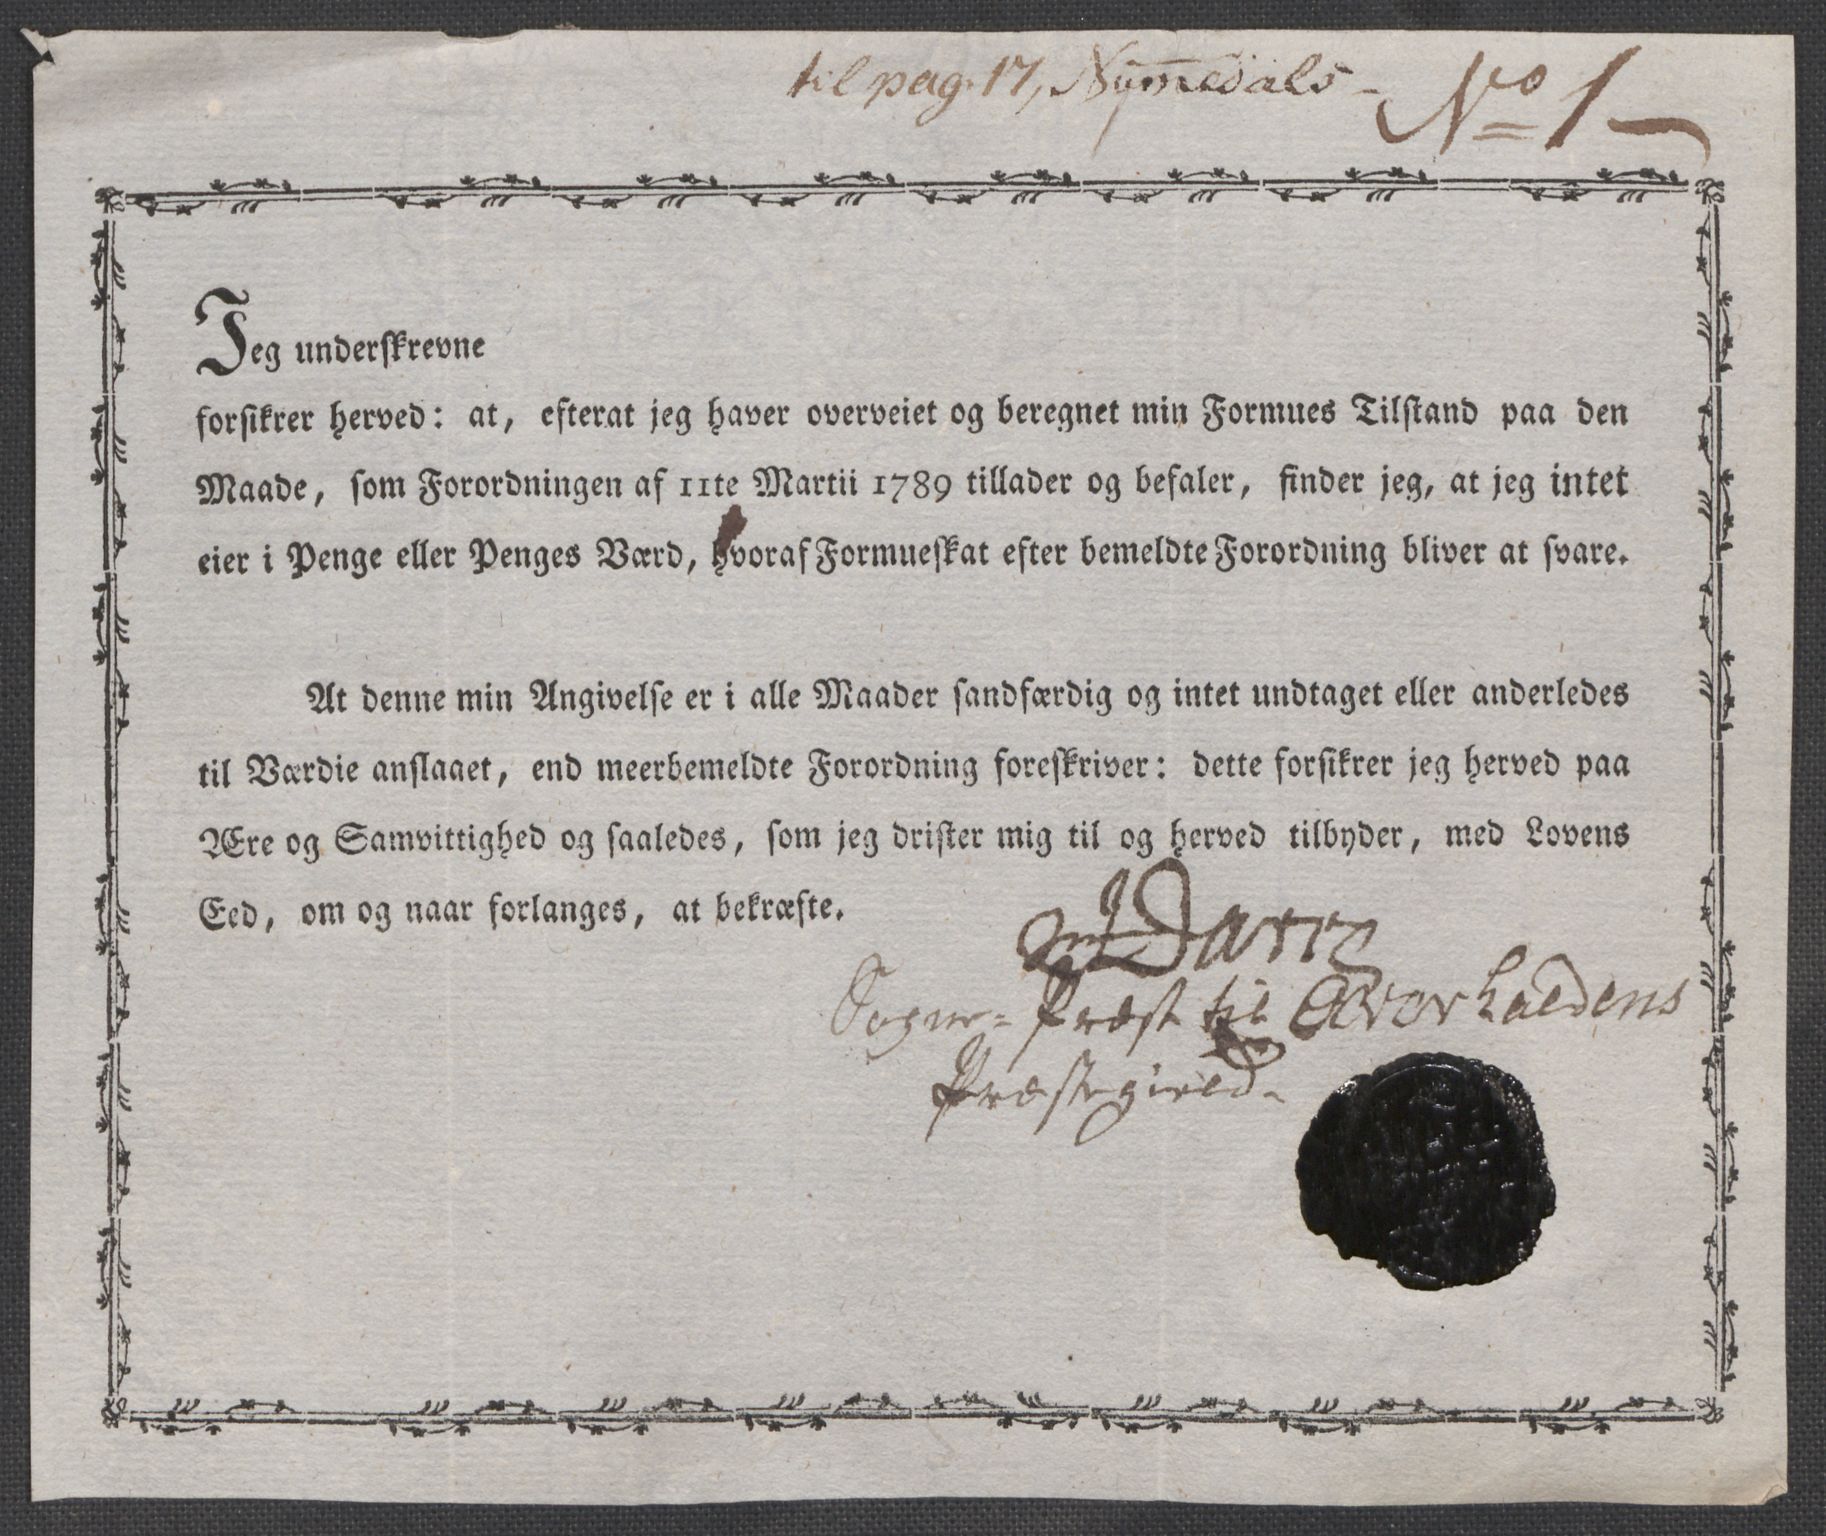 til pag. 17, Nummedals - No 1
Jeg underskrevne
forsikrer herved: at, efterat jeg haver overveiet og beregnet min Formues Tilstand paa den
Maade, som Forordningen af 11te Martii 1789 tillader og befaler, finder jeg, at jeg intet
eier i Penge eller Penges Værd, hvoraf Formueskat efter bemeldte Forordning bliver at svare.
At denne min Angivelse er i alle Maader sandfærdig og intet undtaget eller anderledes
til Værdie anslaaet, end meerbemeldte Forordning foreskriver: dette forsikrer jeg herved paa
Ære og Samvittighed og saaledes, som jeg drister mig til og herved tilbyder, med Lovens
Eed, om og naar forlanges, at bekræfte.
Sogne-Præst til Overhaldens
Præstegield-